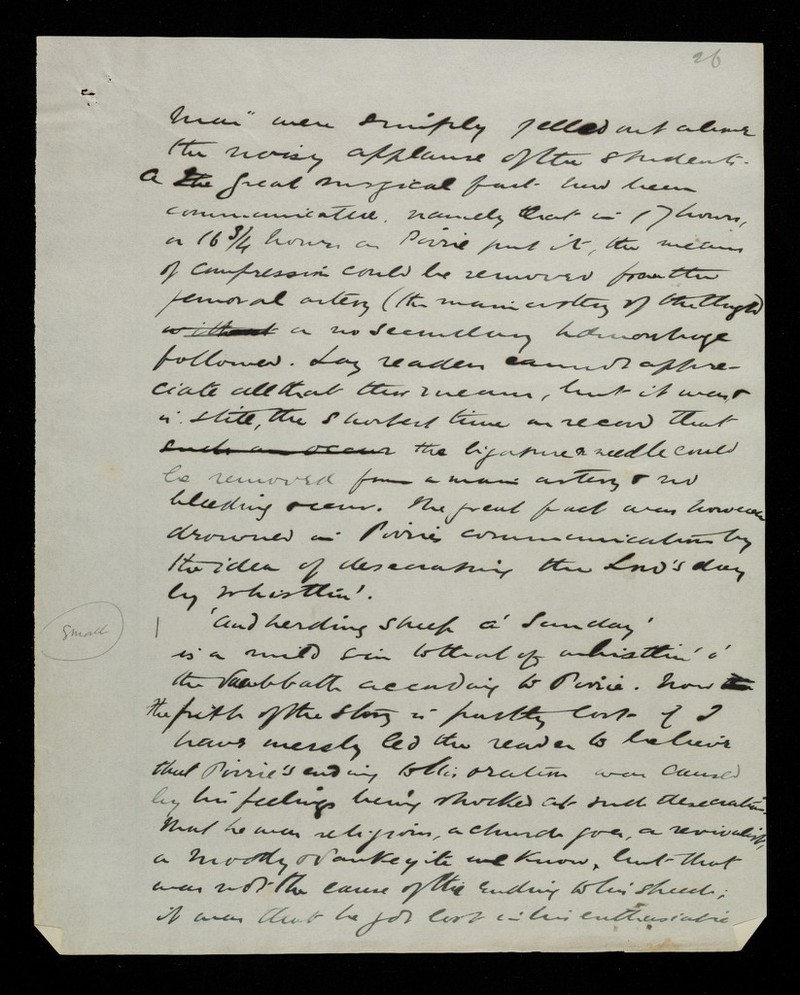 26
man" were simply yelled out above
the noisy applause of the students.
A The great surgical fact had been
communicated, namely that in 17 hours,
or 16 3/4 hours as Pirrie put it, the means
of compression could be removed from the
femoral artery (the main artery of the thigh)
without & no secondary hemorrhage
followed. Lay readers cannot appre-
ciate all that this means, but it was &
is still, the shortest time on record that
such an occur the ligature & needle could
be removed from a main artery & no
bleeding occur. The great fact was however
drowned in Pirrie's communication by
the idea of desecrating the Lord's day
by whistlin'.
'and herding sheep a' Sunday'
small
is a mild sin to that of whistlin' o'
the Sawbbath according to Pirrie. Now
the pith of the story is partly lost if I
have merely led the reader to believe
that Pirrie's ending to his oration was caused
by his feelings being shocked at such desecration.
That he was religious, a church goer, a revivalist,
a Moody & Sankeyite we know, but that
was not the cause of the ending to his speech;
it was that he got lost in his enthusiastic